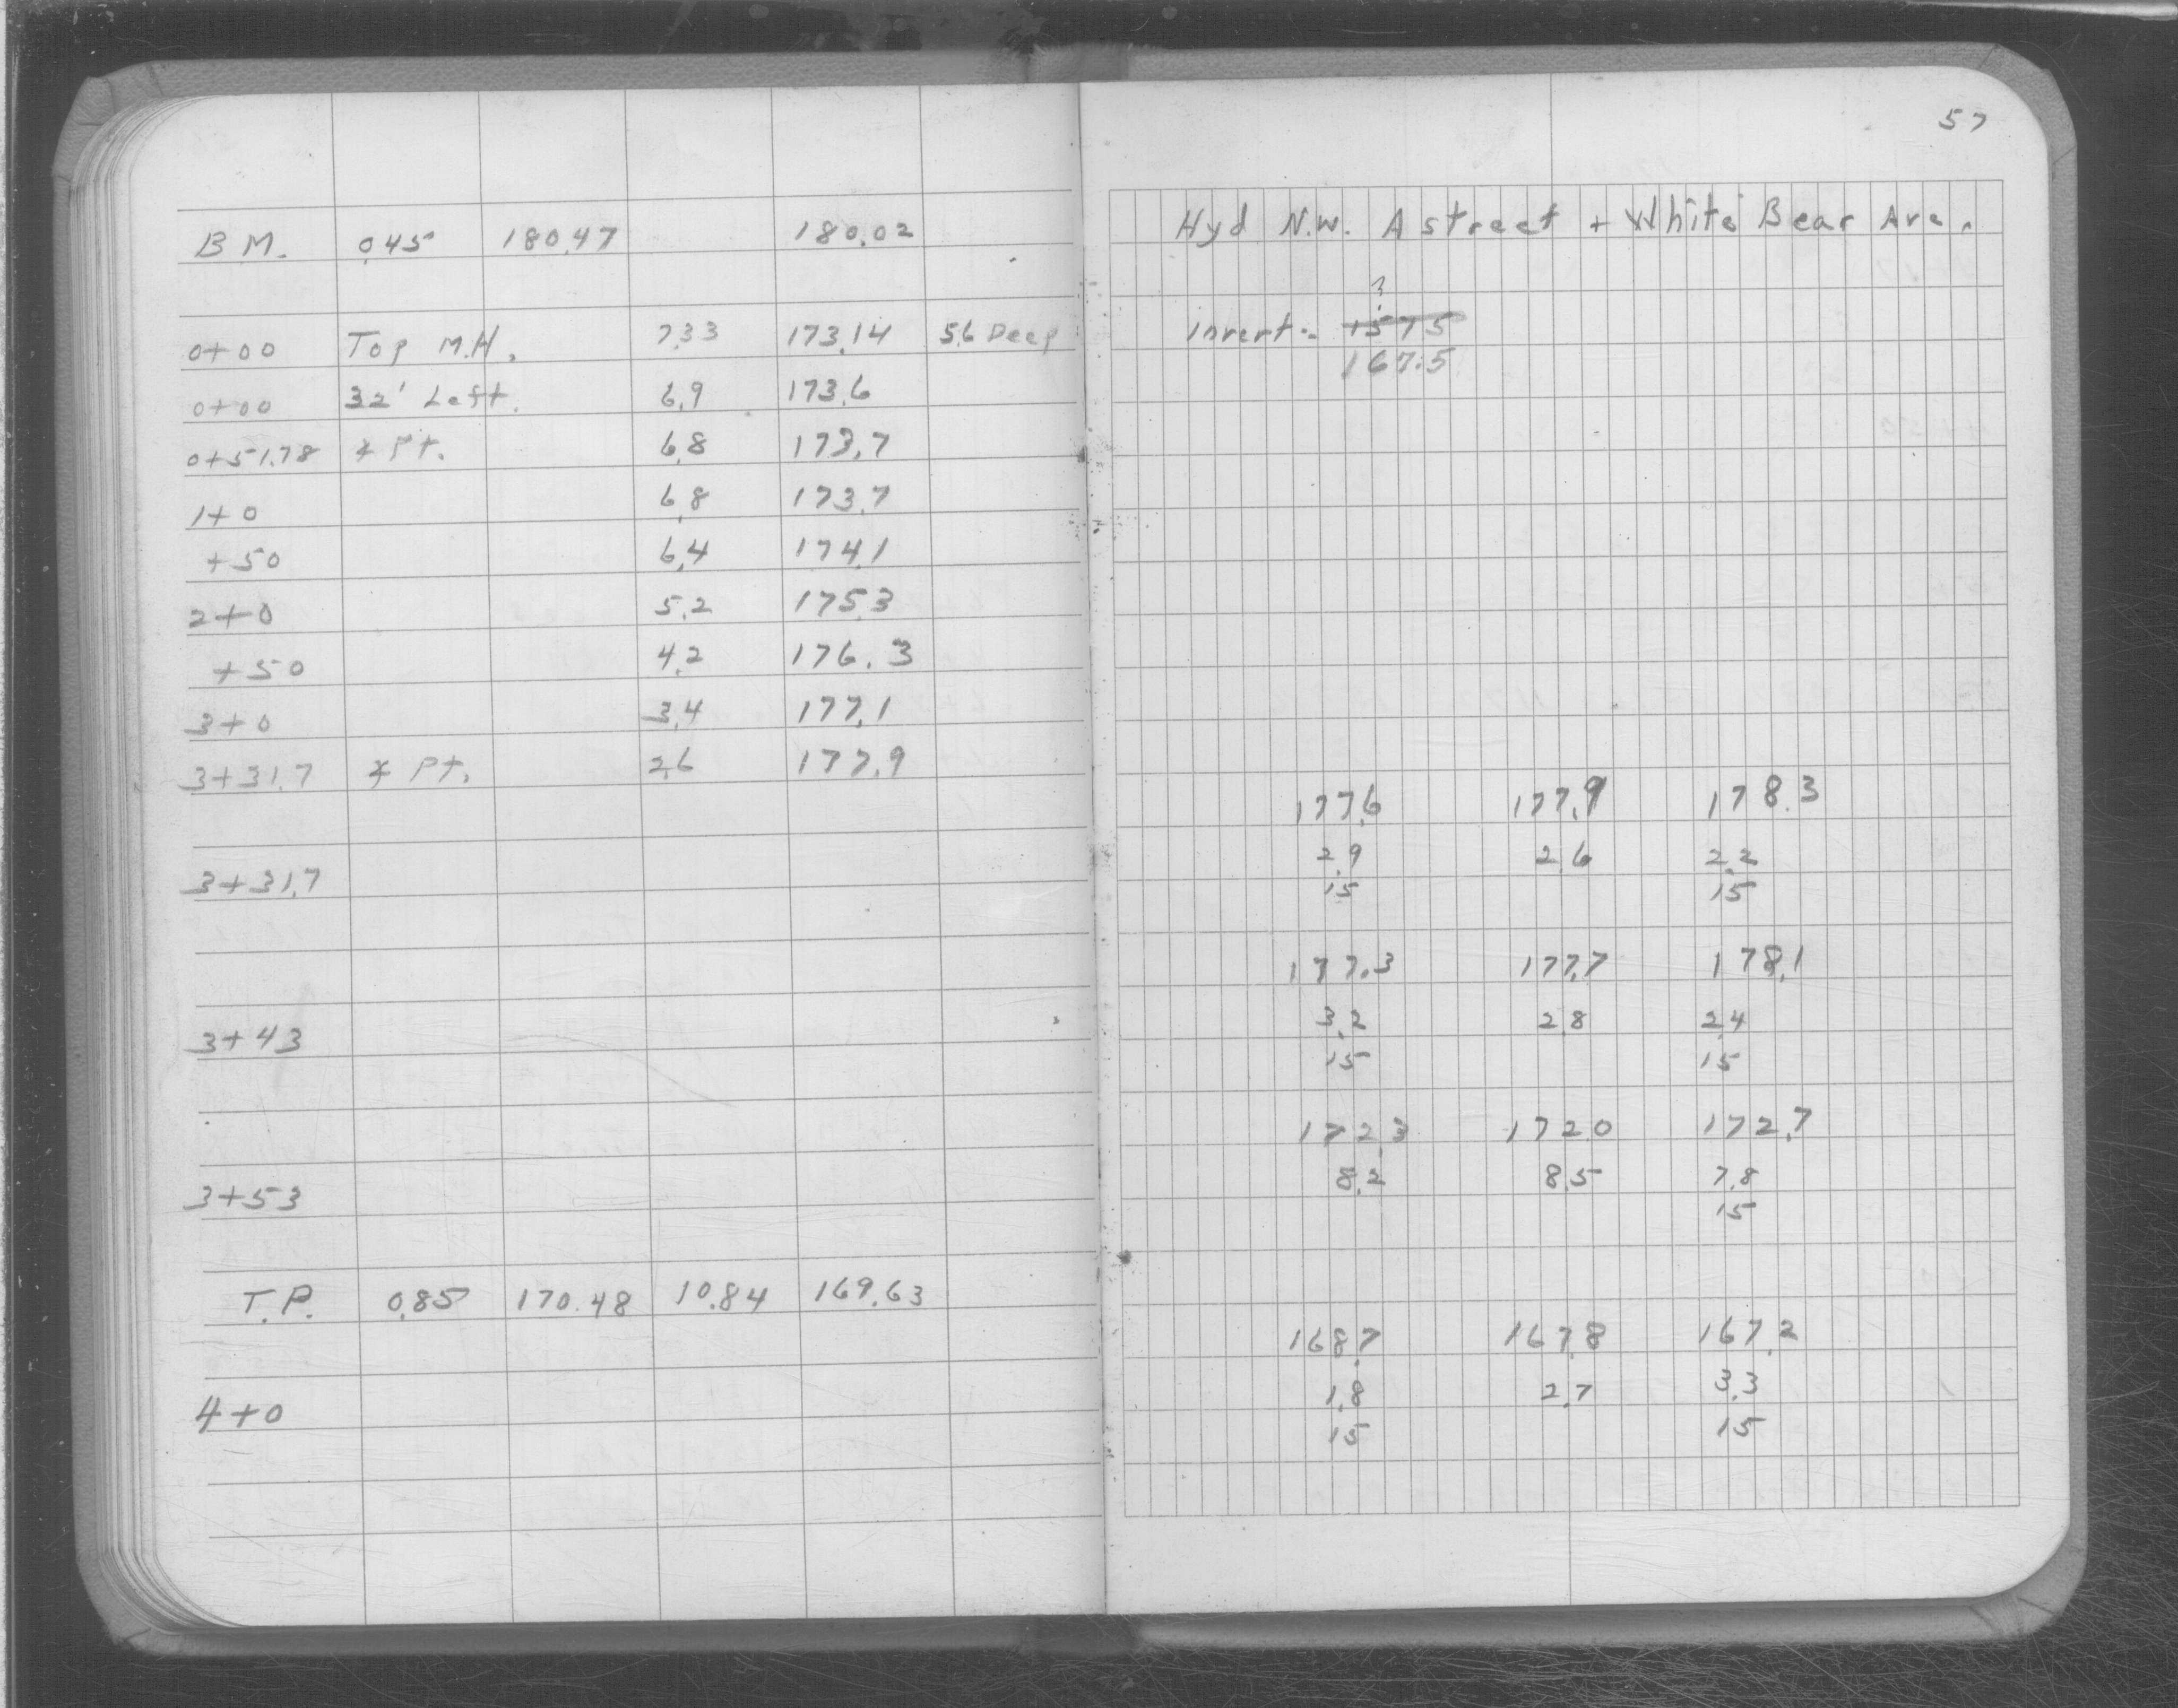 57
B.M. 0.45 180.47 180.02 Hyd N.W. A street + White Bear Ave.
?
0+00 Top M.H. 7.33 173.14 5.6 Deep Invert = 157.5
167.5
0+00 32' Left. 6.9 173.6
0+51.78 ∡ Pt. 6.8 173.7
1+0 6.8 173.7
+50 6.4 174.1
2+0 5.2 175.3
+50 4.2 176.3
3+0 3.4 177.1
3+31.7 ∡ Pt. 2.6 177.9
177.6 177.9 178.3
3+31.7 2.9 2.6 2.2
15 15
177.3 177.7 178.1
3+43 3.2 2.8 2.4
15 15
172.3 172.0 172.7
3+53 8.2 8.5 7.8
15
T.P. 0.85 170.48 10.84 169.63
168.7 167.8 167.2
4+0 1.8 2.7 3.3
15 15